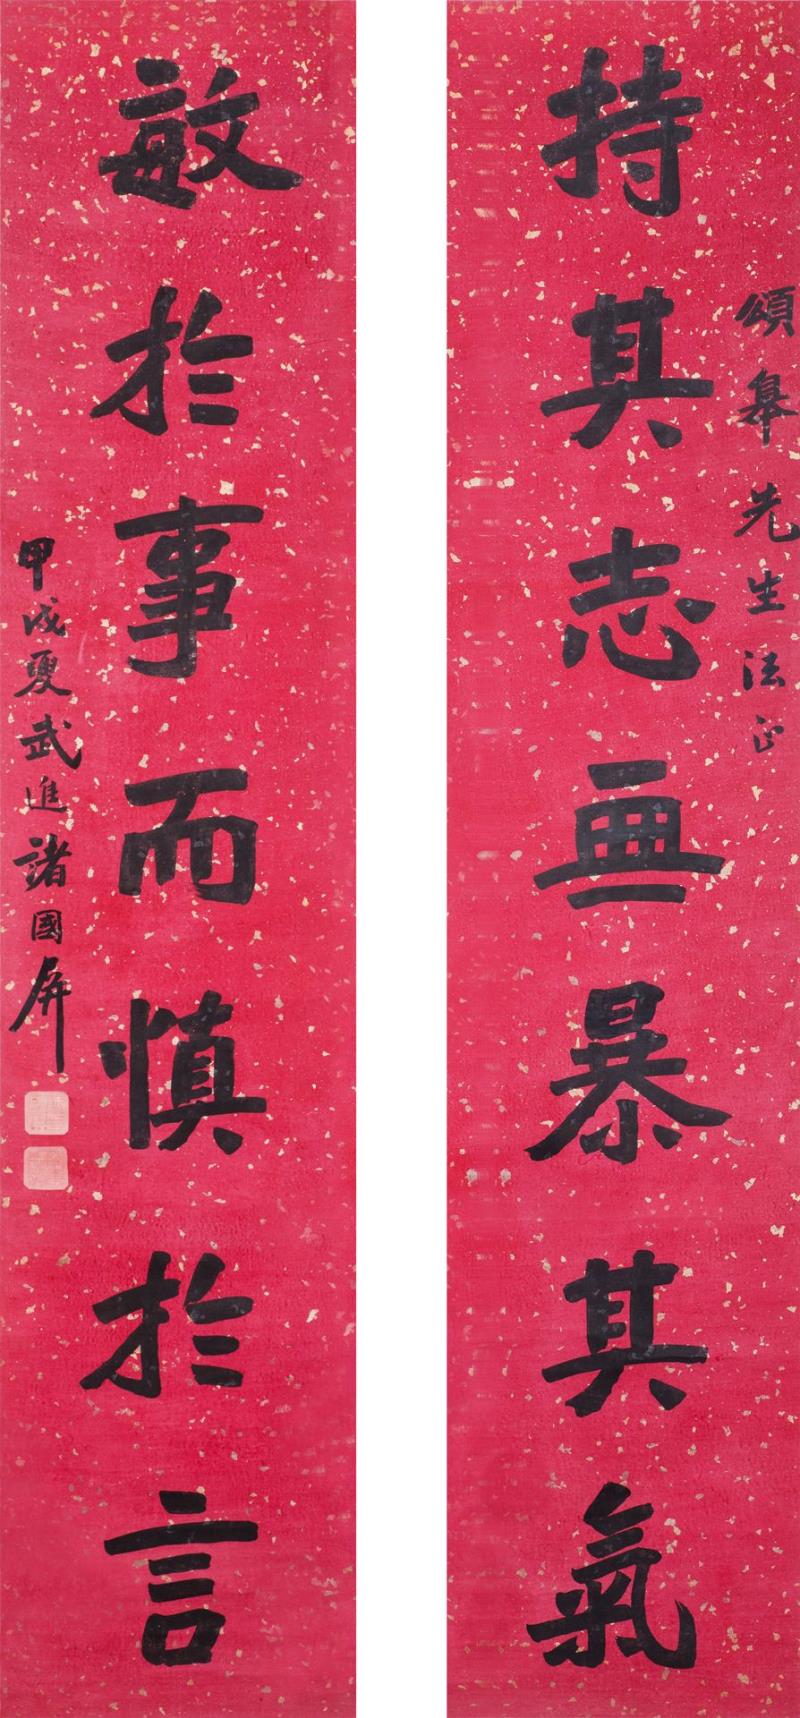 頌皋先生法正
持其志無暴其氣
敏於事而慎於言
甲戌夏武進諸國屏